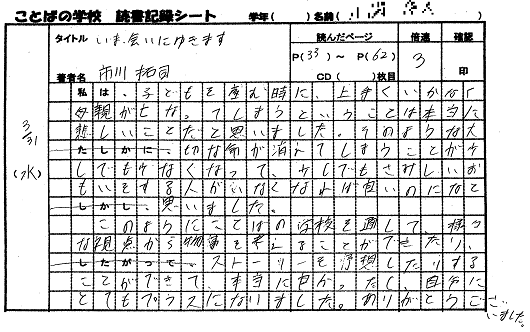 ことばの学校 読書記録シート 学年( ) 名前(
タイトル いま、会いにゆきます
読んだページ 倍速 確認
P(33) ～ P(62) 3
著者名 市川 拓司 CD( )枚目 印
3/31 (水)
私は、子どもを産む時に、上手くいかなく
母親が亡くなってしまうということは本当に
悲しいことだと思いました。そのような大
たしかに、切な命が消えてしまうことが少
しでも少なくなって、少しでもさみしいお
もいをする人がいなくなれば良いのになと
しかし、思いました。
このようにことばの学校を通して、様々
な視点から物事を考えることができたり、
したがって、ストーリーを予想したりする
ことができて、本当に良かったし、自分に
とてもプラスになりました。ありがとうご
ざいました。